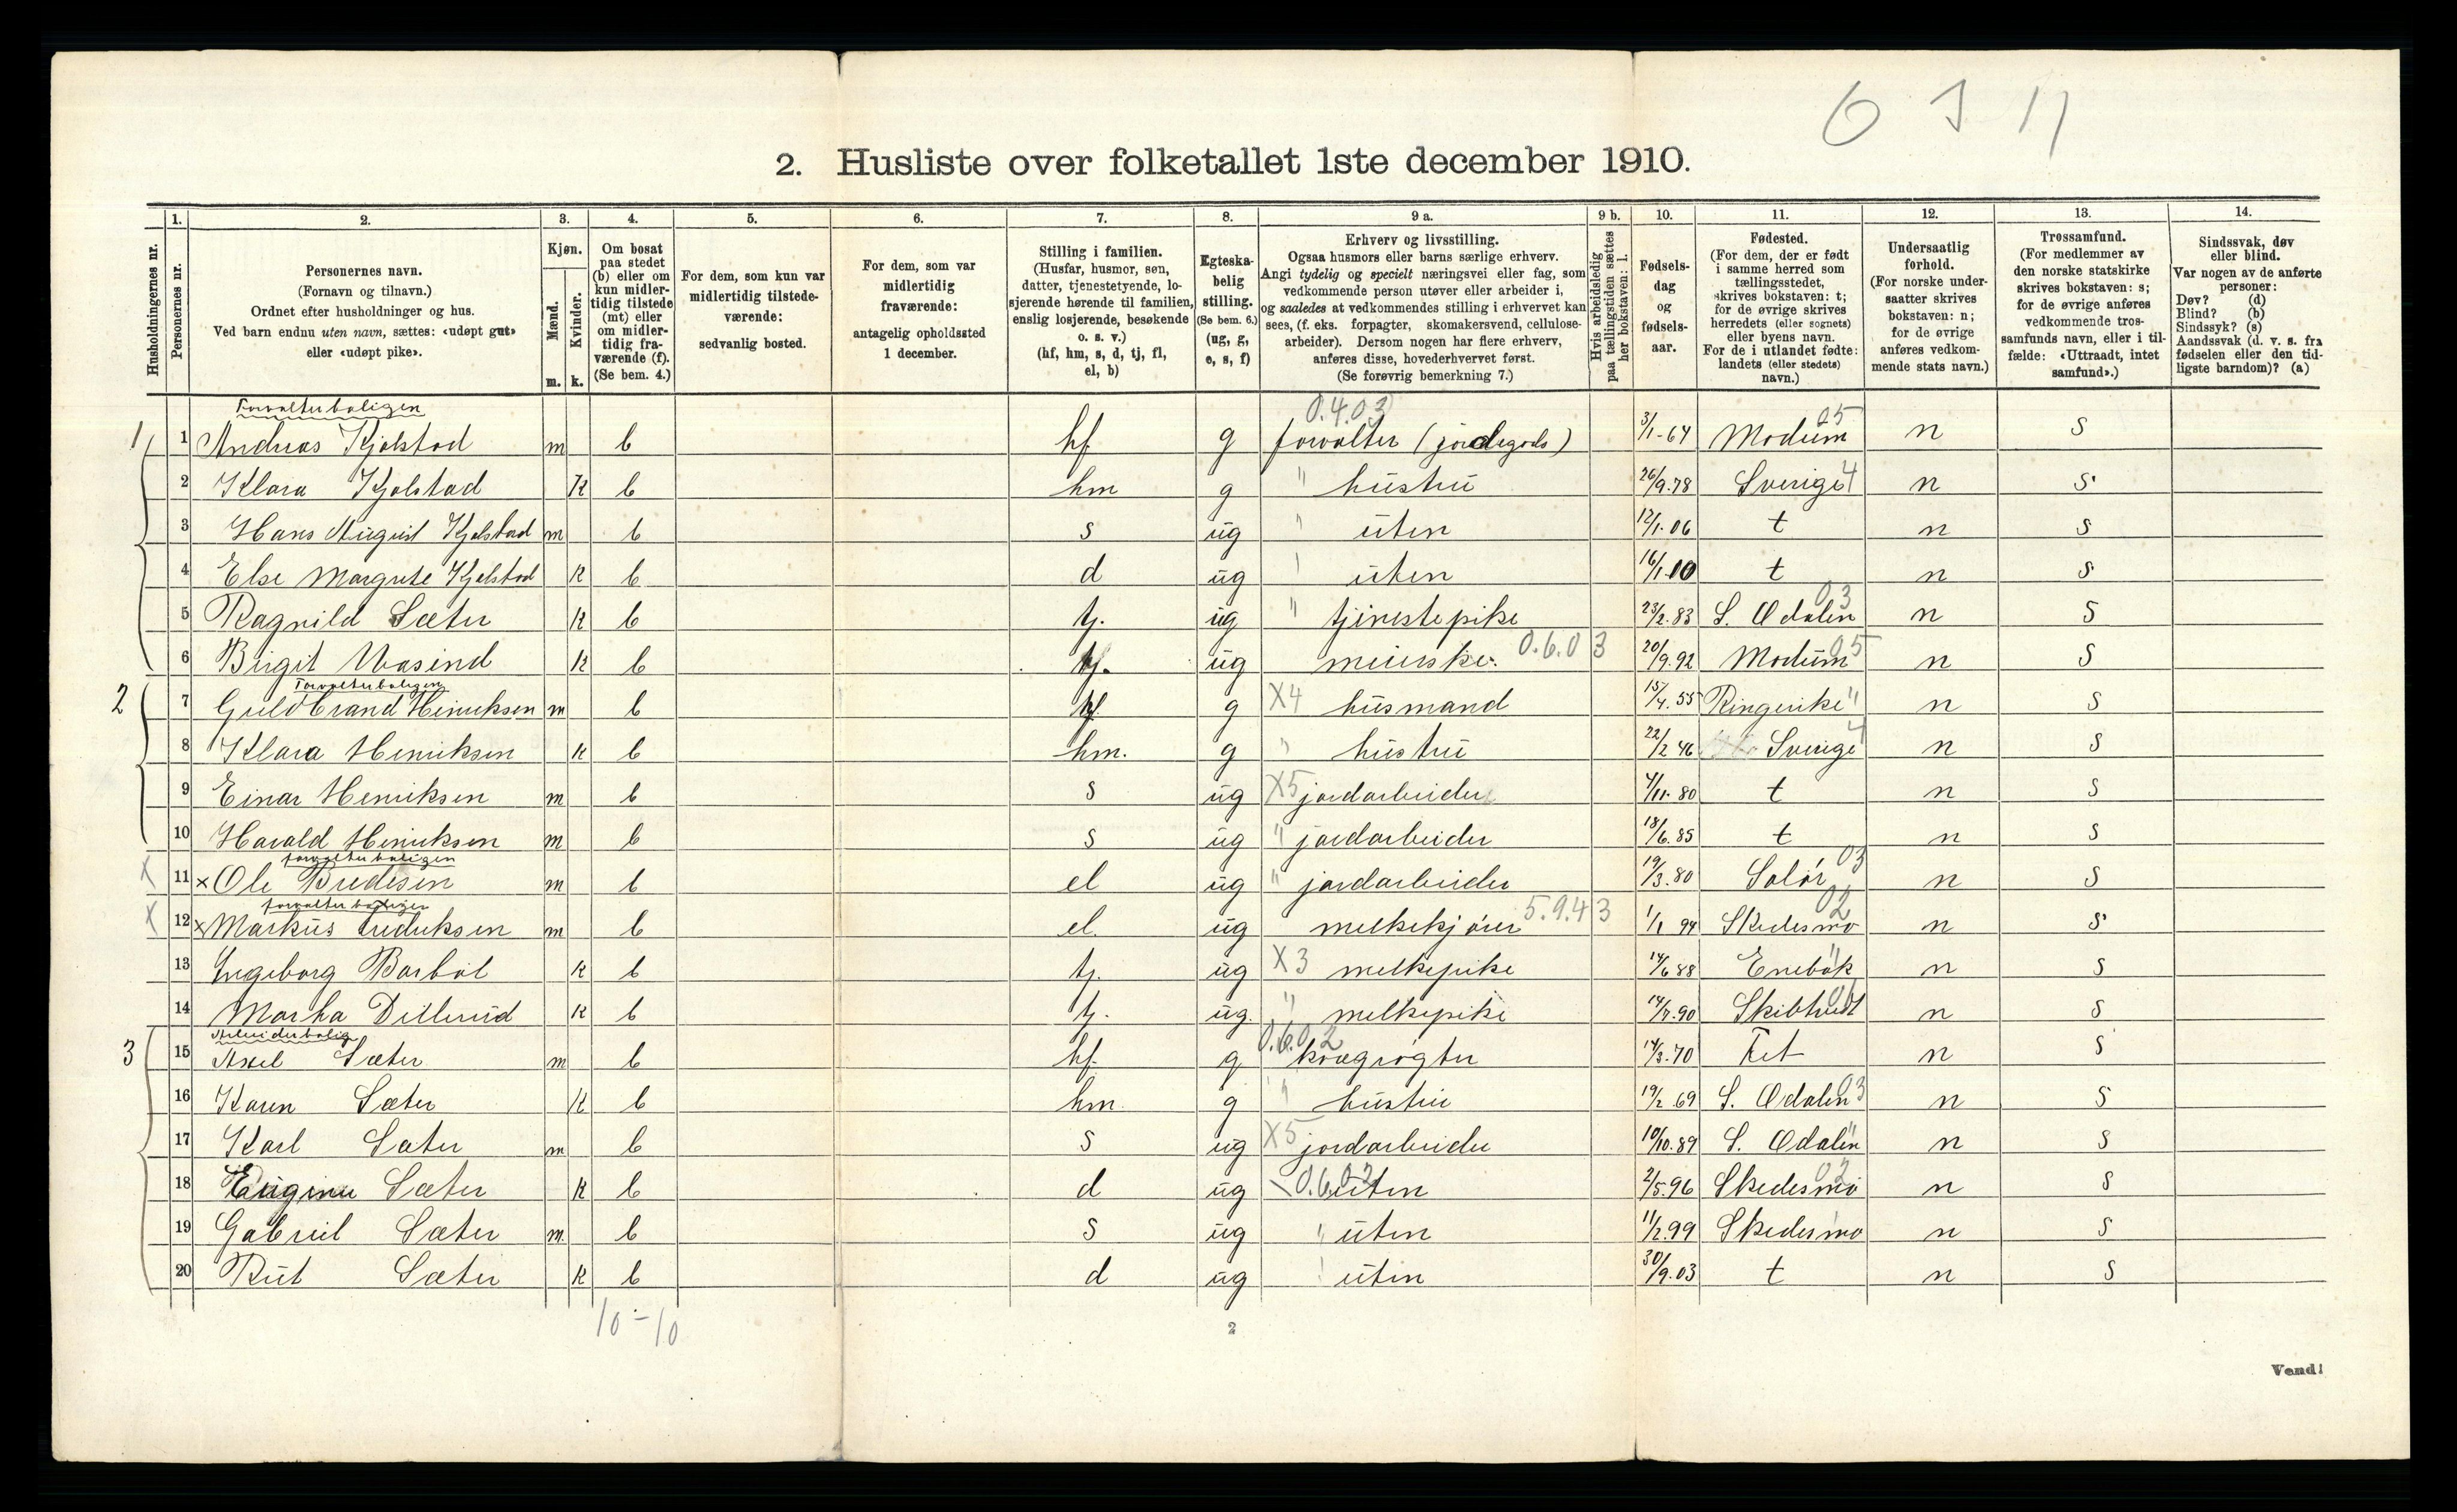 6 5 11
2. Husliste over folketallet 1ste december 1910.
1. 2. 3. 4. 5. 6. 7. 8. 9 a. 9 b. 10. 11. 12. 13. 14.
Husholdningernes nr.
Personernes nr.
Personernes navn.
(Fornavn og tilnavn.)
Ordnet efter husholdninger og hus.
Ved barn endnu uten navn, sættes: «udøpt gut»
eller «udøpt pike».
Kjøn.
Mænd.
Kvinder.
m. k.
Om bosat
paa stedet
(b) eller om
kun midler-
tidig tilstede
(mt) eller
om midler-
tidig fra-
værende (f).
(Se bem. 4.)
For dem, som kun var
midlertidig tilstede-
værende:
sedvanlig bosted.
For dem, som var
midlertidig
fraværende:
antagelig opholdssted
1 december.
Stilling i familien.
(Husfar, husmor, søn,
datter, tjenestetyende, lo-
sjerende hørende til familien,
enslig losjerende, besøkende
o. s. v.)
(hf, hm, s, d, tj, fl,
el, b)
Egteska-
belig
stilling.
(Se bem. 6.)
(ug, g,
e, s, f)
Erhverv og livsstilling.
Ogsaa husmors eller barns særlige erhverv.
Angi tydelig og specielt næringsvei eller fag, som
vedkommende person utøver eller arbeider i,
og saaledes at vedkommendes stilling i erhvervet kan
sees, (f. eks. forpagter, skomakersvend, cellulose-
arbeider). Dersom nogen har flere erhverv,
anføres disse, hovederhvervet først.
(Se forøvrig bemerkning 7.)
Hvis arbeidsledig
paa tællingstiden sættes
her bokstaven: l.
Fødsels-
dag
og
fødsels-
aar.
Fødested.
(For dem, der er født
i samme herred som
tællingsstedet,
skrives bokstaven: t;
for de øvrige skrives
herredets (eller sognets)
eller byens navn.
For de i utlandet fødte:
landets (eller stedets)
navn.)
Undersaatlig
forhold.
(For norske under-
saatter skrives
bokstaven: n;
for de øvrige
anføres vedkom-
mende stats navn.)
Trossamfund.
(For medlemmer av
den norske statskirke
skrives bokstaven: s;
for de øvrige anføres
vedkommende tros-
samfunds navn, eller i til-
fælde: «Uttraadt, intet
samfund».)
Sindssvak, døv
eller blind.
Var nogen av de anførte
personer:
Døv? (d)
Blind? (b)
Sindssyk? (s)
Aandssvak (d. v. s. fra
fødselen eller den tid-
ligste barndom)? (a)
Forvalterboligen 0.4.03 05
1 1 Andreas Kjølstad m b hf g forvalter (jordegods) 3/1-64 Modum n s
2 Klara Kjølstad k b hm g " hustru 26/9.78 Sverige 4 n s
3 Hans August Kjølstad m b s ug " uten 12/1.06 t n s
4 Else Margrete Kjølstad k b d ug " uten 16/1.10 t n s
5 Ragnild Sæter k b tj. ug " tjenestepike 23/2.83 S. Odalen 03 n s
6 Birgit Vasind k b tj. ug meierske. 0.6.03 20/9.92 Modum 05 n s
Forvalterboligen
2 7 Guldbrand Henriksen m b hf g X4 husmand 15/4.55 Ringerike " n s
8 Klara Henriksen k b hm. g " hustru 22/2 46 Sverige 4 n s
9 Einar Henriksen m b s ug X5 jordarbeider 4/11.80 t n s
10 Harald Henriksen m b s ug " jordarbeider 18/6.85 t n s
forvalterboligen
X 11 x Ole Bredesen m b el ug " jordarbeider 19/3.80 Solør 03 n s
forvalterboligen
X 12 x Markus Fredriksen m b el. ug melkekjører 5.9.43 1/1 94 Skedesmo 02 n s
13 Ingeborg Barbøl k b tj. ug X3 melkepike 14/6 88 Enebak " n s
14 Martha Dillerud k b tj. ug. " melkepike 14/7.90 Skibtvedt 01 n s
Arbeiderbolig
3 15 Axel Sæter m b hf g 0.6.02 kvægrøgter 14/3.70 Fet n s
16 Karen Sæter k b hm. g " hustru 19/2.69 S. Odalen 03 n s
17 Karl Sæter m b s ug X5 jordarbeider 10/10.89 S. Odalen " n s
18 Eugine Sæter k b d ug 0.6.02 uten 2/5.96 Skedesmo 02 n s
19 Gabriel Sæter m. b s ug " uten 11/2.99 Skedesmo n s
20 Rut Sæter k b d ug " uten 30/9.03 t n s
10-10
2
Vend!